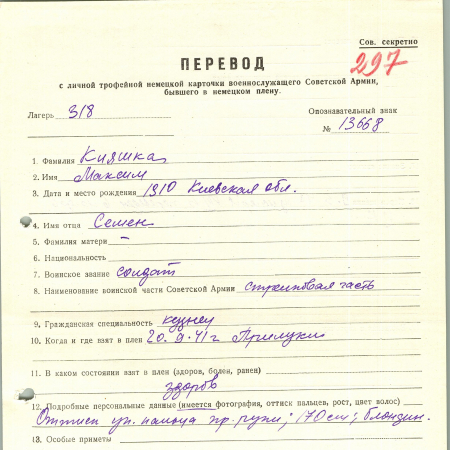 Сов. секретно
297
ПЕРЕВОД
с личной трофейной немецкой карточки военнослужащего Советской Армии,
бывшего в немецком плену.
Лагерь 318
Опознавательный знак
№ 13668
1. Фамилия Кияшка
2. Имя Максим
3. Дата и место рождения 1910 Киевская обл.
4. Имя отца Семен
5. Фамилия матери –
6. Национальность
7. Воинское звание солдат
8. Наименование воинской части Советской Армии стрелковая часть
9. Гражданская специальность кузнец
10. Когда и где взят в плен 20.9.41г Прилуки
11. В каком состоянии взят в плен (здоров, болен, ранен)
здоров
12. Подробные персональные данные (имеется фотография, оттиск пальцев, рост, цвет волос)
Оттиск ук. пальца пр. руки; 170 см; блондин.
13. Особые приметы